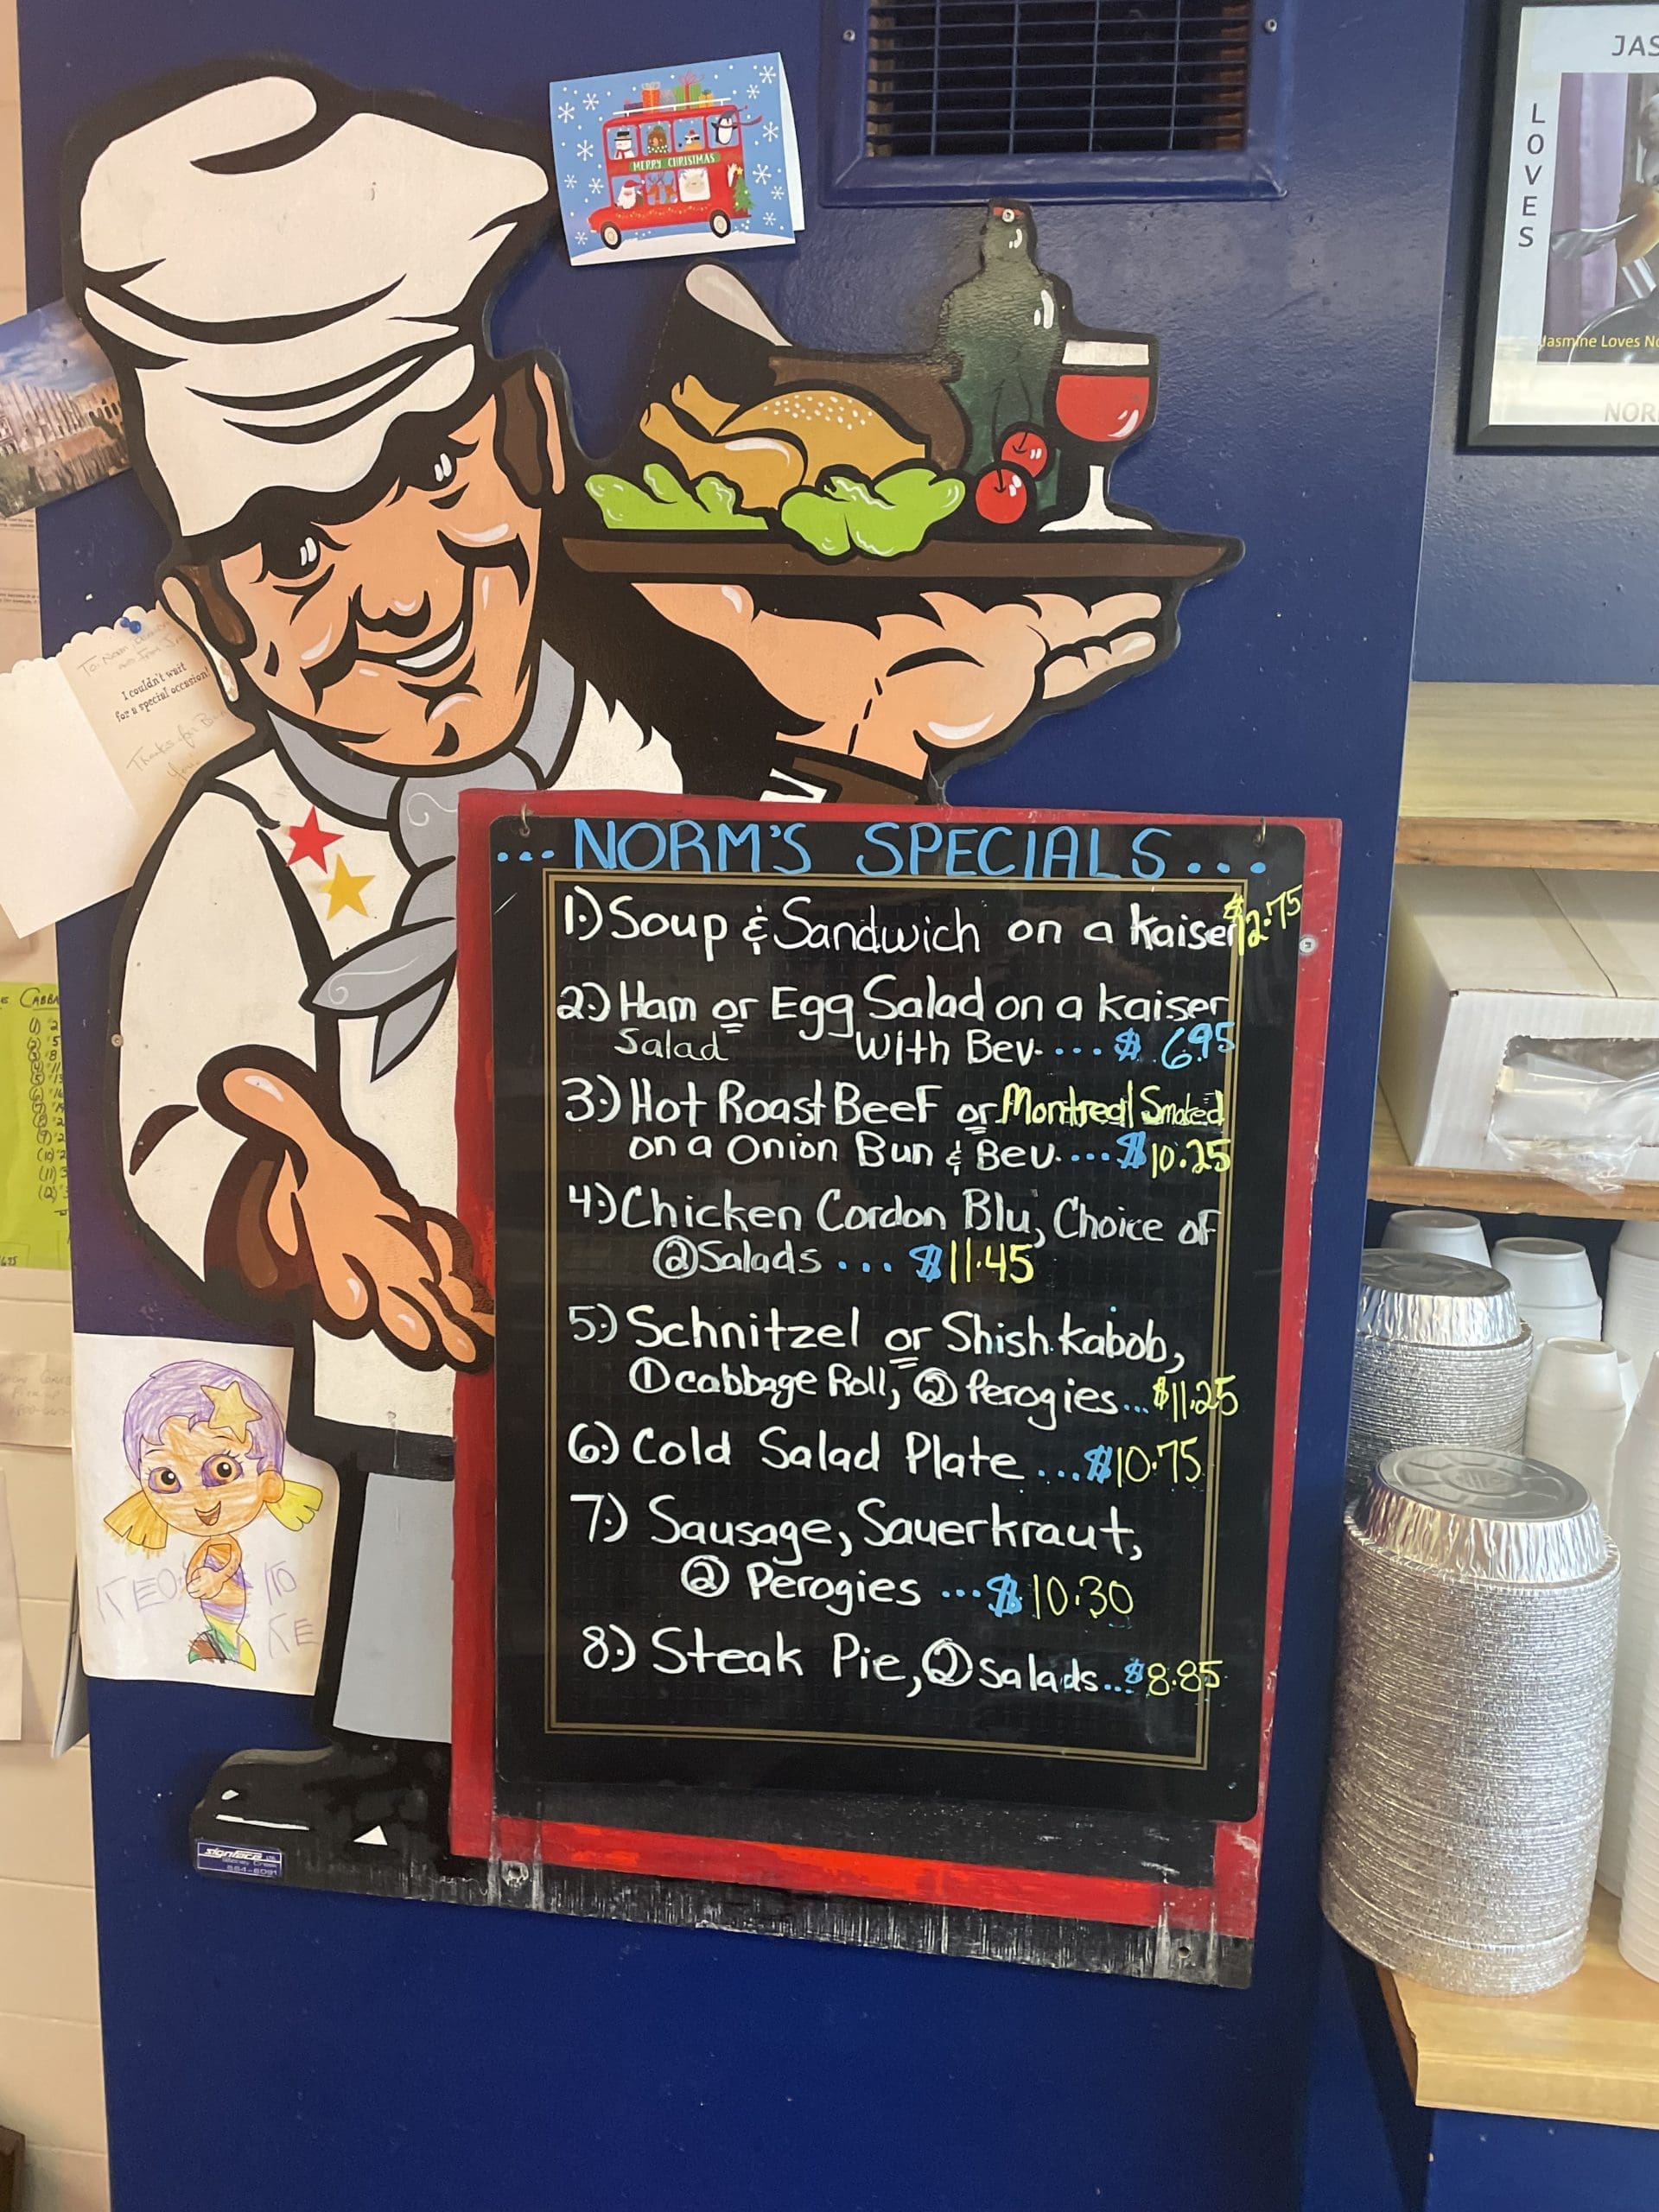 MERRY CHRISTMAS
JAS
LOVES
Jasmine Loves No
NOR
To: Norm
I couldn't wait
for a special occasion!
Thanks for
... NORM'S SPECIALS...
1.) Soup & Sandwich on a Kaiser $12.75
2.) Ham or Egg Salad on a Kaiser
Salad With Bev.... $ 6.95
3.) Hot Roast Beef or Montreal Smoked
on a Onion Bun & Bev.... $10.25
4.) Chicken Cordon Blu, Choice of
② Salads ... $11.45
5.) Schnitzel or Shish.kabob,
① cabbage Roll, ② Perogies... $11.25
6.) Cold Salad Plate ...$10.75
7.) Sausage, Sauerkraut,
② Perogies ...$10.30
8.) Steak Pie, ② Salads...$8.85
CABBA
signface LTD.
Stoney Creek
664-6091